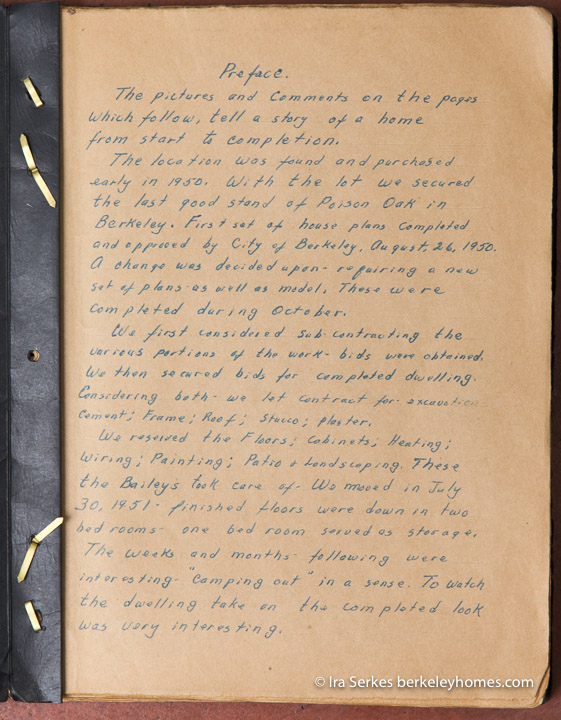 Preface.
The pictures and Comments on the pages
which follow, tell a story of a home
from start to completion.
The location was found and purchased
early in 1950. With the lot we secured
the last good stand of Poison Oak in
Berkeley. First set of house plans completed
and approved by City of Berkeley, August, 26, 1950.
A change was decided upon- requiring a new
set of plans- as well as model. These were
completed during October.
We first considered sub-contracting the
various portions of the work- bids were obtained.
We then secured bids for completed dwelling.
Considering both- we let contract for- excavation
Cement; Frame; Roof; Stucco; plaster.
We reserved the Floors; Cabinets; Heating;
Wiring; Painting; Patio & Landscaping. These
the Baileys took care of- We moved in July
30, 1951- finished floors were down in two
bed rooms- one bed room served as storage.
The weeks and months following were
interesting- "Camping out" in a sense. To watch
the dwelling take on the completed look
was very interesting.
© Ira Serkes berkeleyhomes.com